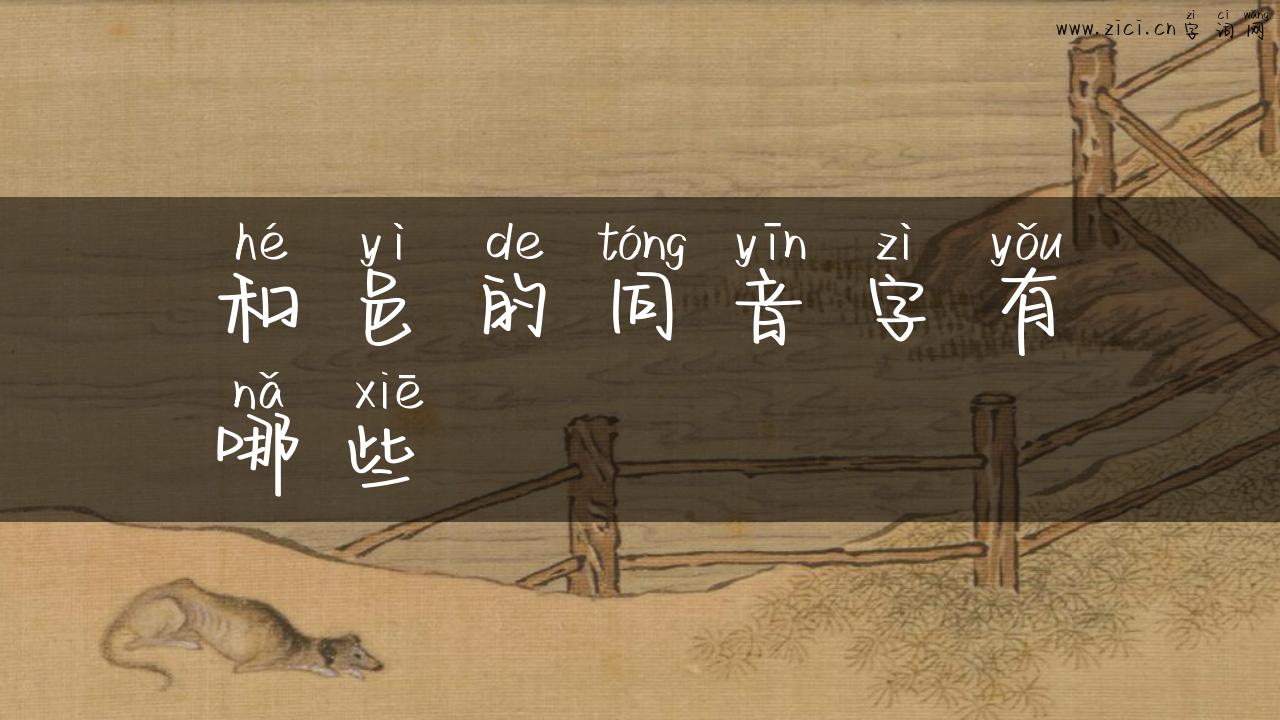 zì cí wǎng
www.zici.cn 字词网
hé yì de tóng yīn zì yǒu
和邑的同音字有
nǎ xiē
哪些